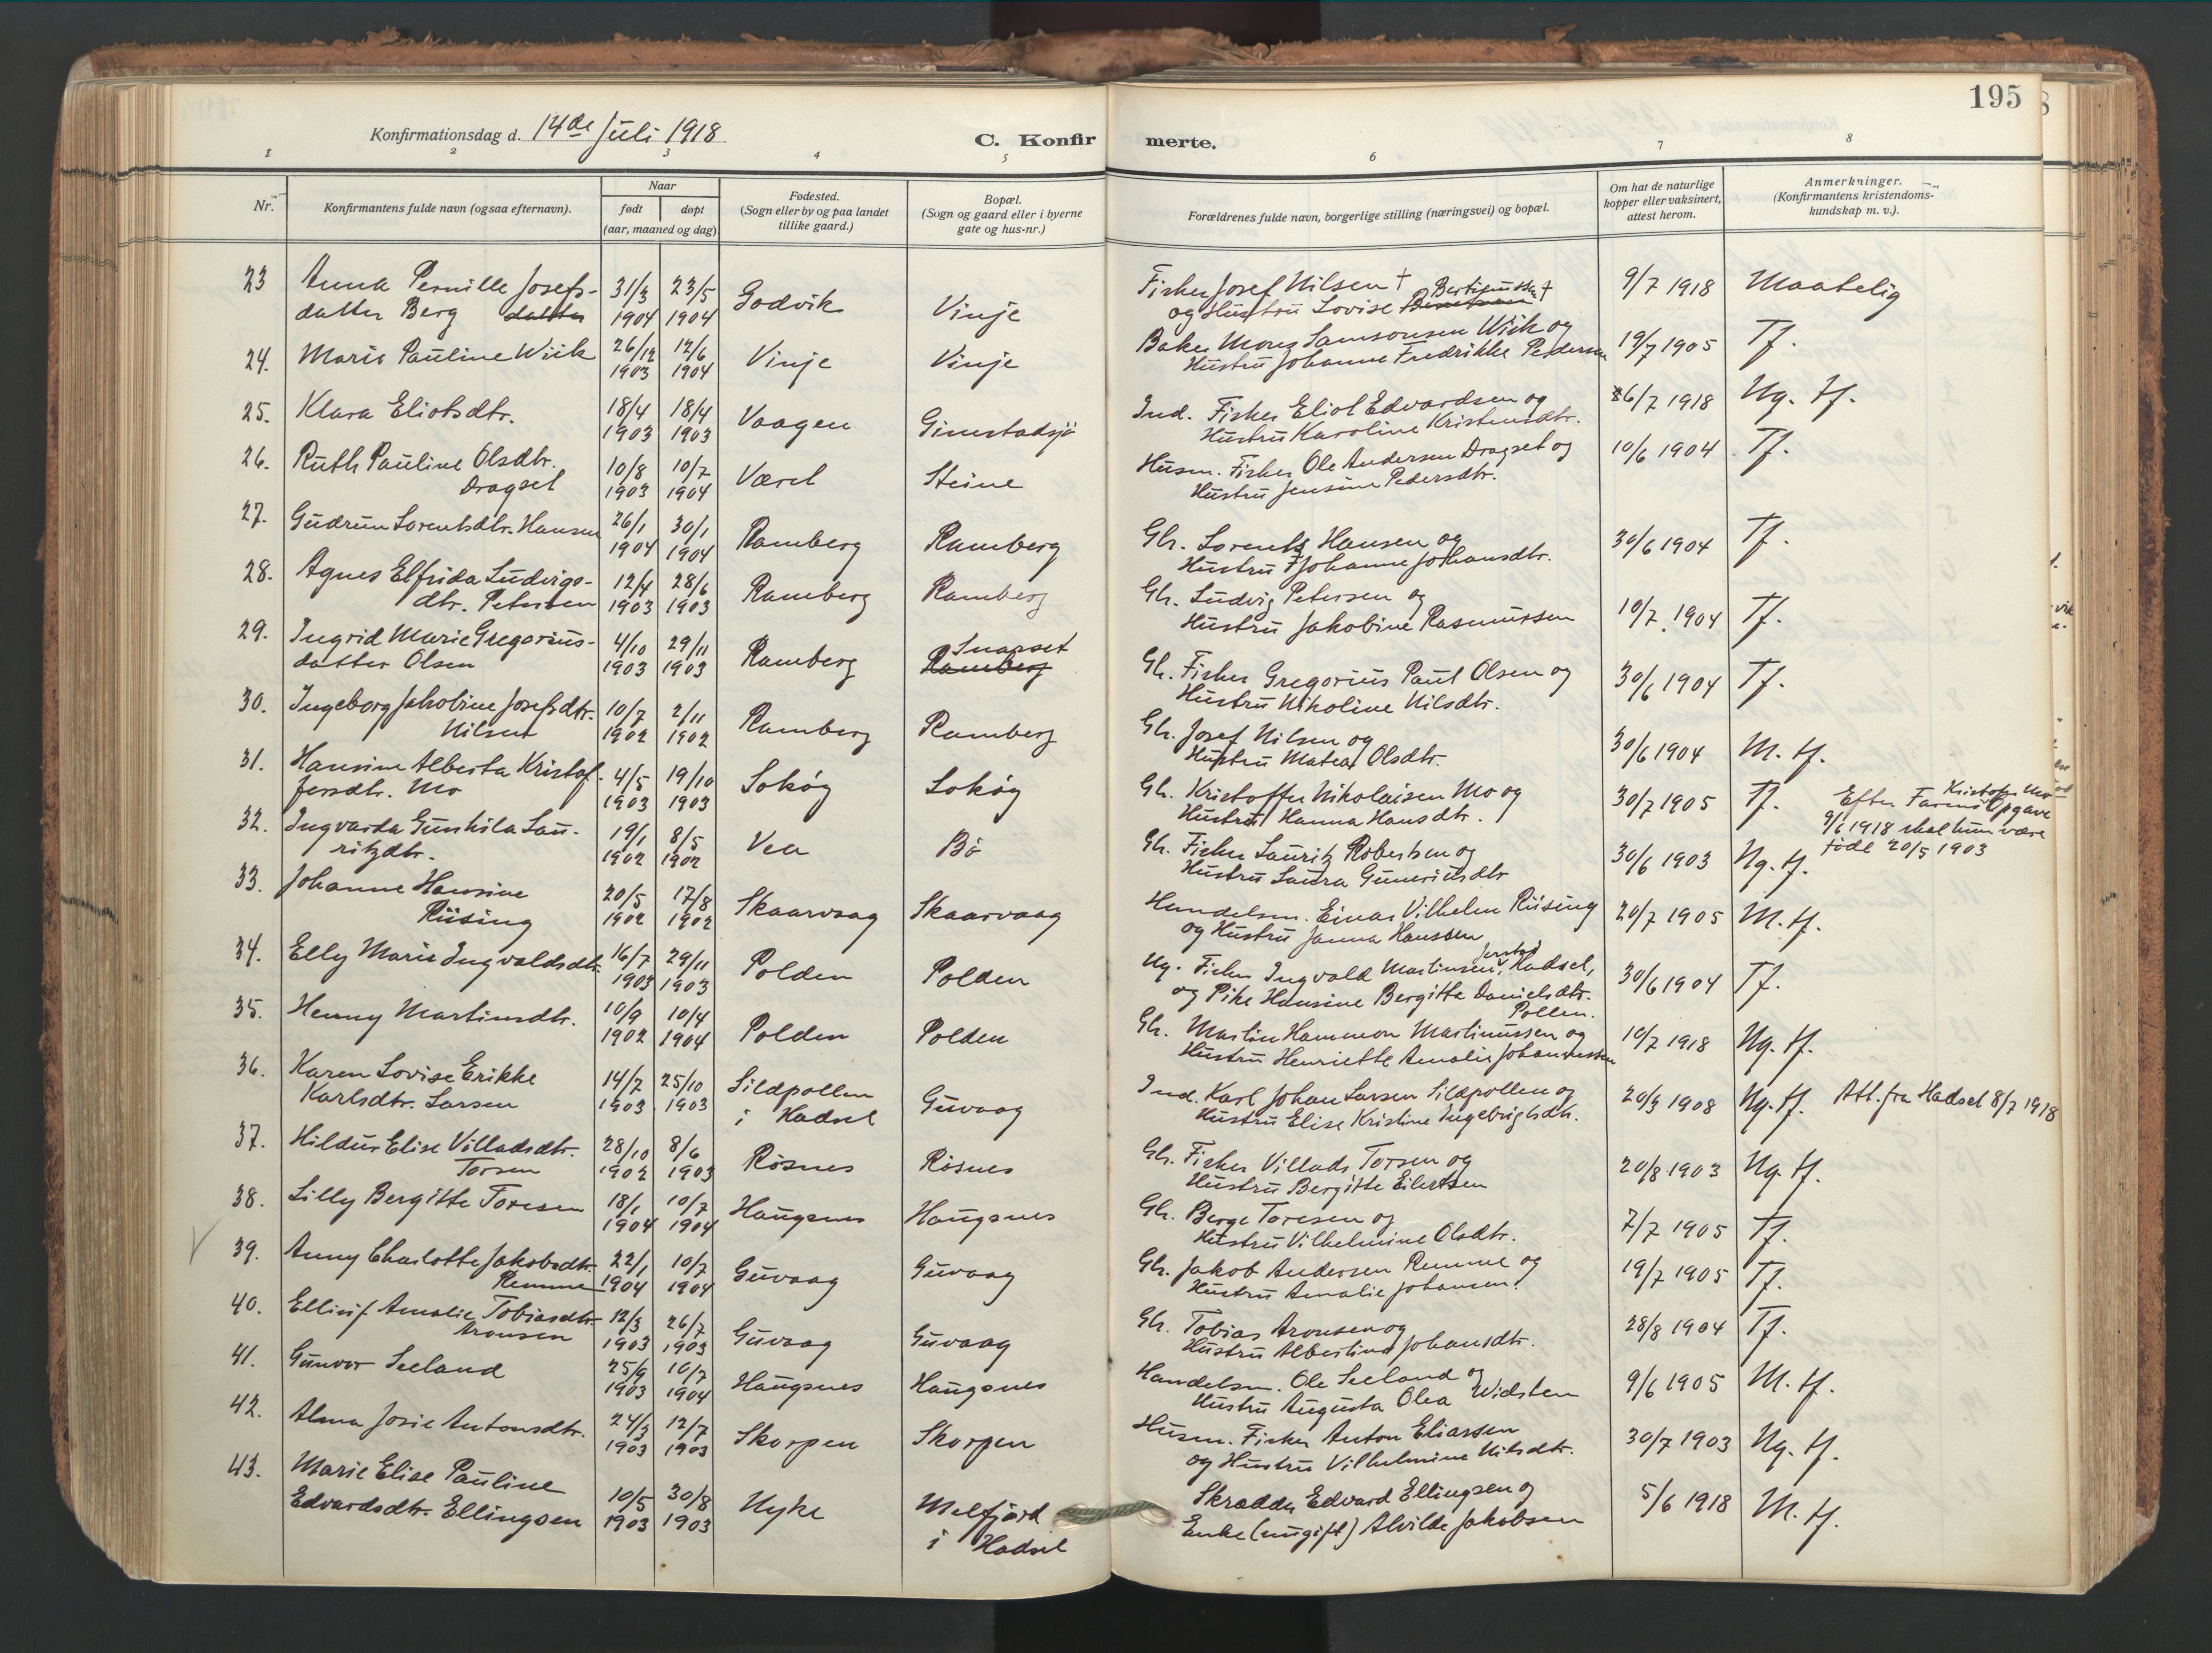 195
Konfirmationsdag d. 14de Juli 1918
C. Konfirmerte.
1 2 3 4 5 6 7 8
Nr.
Konfirmantens fulde navn (ogsaa efternavn).
Naar
født | døpt
(aar, maaned og dag)
Fødested.
(Sogn eller by og paa landet
tillike gaard.)
Bopæl.
(Sogn og gaard eller i byerne
gate og hus-nr.)
Forældrenes fulde navn, borgerlige stilling (næringsvei) og bopæl.
Om hat de naturlige
kopper eller vaksinert,
attest herom.
Anmerkninger.
(Konfirmantens kristendoms-
kundskap m. v.).
23 Anna Pernille Josefs- 31/3 23/5 Godvik Vinje Fisker Josef Nilsen † Bertinussen † 9/7 1918 Maatelig
datter Berg datter 1904 1904 og Hustru Lovise
24. Marie Pauline Wiik 26/12 12/6 Vinje Vinje Baker Mons Samsonsen Wiik og 19/7 1905 Tf.
1903 1904 Hustru Johanne Fredrikke Pedersen
25. Klara Eliotsdtr. 18/4 18/4 Vaagen Gimstadsjö Ind. Fisker Eliot Edvardsen og 6/7 1918 Ng. tf.
1903 1903 Hustru Karoline Kristensdtr.
26. Ruth Pauline Olsdtr. 10/8 10/7 Været Steine Husm. Fisker Ole Andersen Dragset og 10/6 1904 Tf.
Dragset 1903 1904 Hustru Jensine Pedersdtr.
27. Gudrun Lorentsdtr. Hansen 26/1 30/1 Ramberg Ramberg Gbr. Lorents Hansen og 30/6 1904 Tf.
1904 1904 Hustru Johanne Johansdtr.
28. Agnes Elfrida Ludvigs- 12/4 28/6 Ramberg Ramberg Gbr. Ludvig Petersen og 10/7 1904 Tf.
dtr. Petersen 1903 1903 Hustru Jakobine Rasmussen
29. Ingrid Marie Gregorius- 4/10 29/11 Ramberg Snarset Gbr. Fisker Gregorius Paul Olsen og 30/6 1904 Tf.
datter Olsen 1903 1903 Ramberg Hustru Nikoline Nilsdtr.
30. Ingeborg Jakobine Josefsdtr. 10/7 2/11 Ramberg Ramberg Gbr. Josef Nilsen og 30/6 1904 M. tf.
Nilsen 1902 1902 Hustru Matea Olsdtr.
31. Hansine Alberta Kristof- 4/5 19/10 Sokøy Sokøy Gbr. Kristoffer Nikolaisen Mo og 30/7 1905 Tf. Efter Farens Kristofer Mo Opgave
fersdtr. Mo 1903 1903 Hustru Hanna Hansdtr. 9/6 1918 skal hun være
født 20/5 1903
32. Ingvarda Gunhila Lau- 19/1 8/5 Vea Bø Gbr. Fisker Lauritz Robertsen og 30/6 1903 Ng. tf.
ritzdtr. 1902 1902 Hustru Laura Guneriusdtr
33. Johanne Hansine 20/5 17/8 Skaarvaag Skaarvaag Handelsm. Einar Vilhelm Riising 20/7 1905 M. tf.
Riising 1902 1902 og Hustru Janna Hanssen
34. Elly Marie Ingvaldsdtr. 16/7 29/11 Polden Polden Ug. Fisker Ingvald Martinsen, Hadsel, 30/6 1904 Tf.
1903 1903 og Pike Hansine Bergitte Danielsdtr.
Pollen.
35. Henny Martinsdtr. 10/9 10/4 Polden Polden Gbr. Martin Hammon Martinussen og 10/7 1918 Ng. tf.
1902 1904 Hustru Henriette Amalie Johannessen
36. Karen Lovise Erikke 14/7 25/10 Sildpollen Guvaag Ind. Karl Johan Larsen Sildpollen og 20/3 1908 Ng. tf. Att. fra Hadsel 8/7 1918
Karlsdtr. Larsen 1903 1903 i Hadsel Hustru Elise Kristine Ingebrigtsdtr.
37. Hildur Elise Villadsdtr. 28/10 8/6 Risnes Risnes Gbr. Fisker Villads Torsen og 20/8 1903 Ng. tf.
Torsen 1902 1903 Hustru Bergitte Eilertsen
38. Lilly Bergitte Toresen 18/1 10/7 Haugsnes Haugsnes Gbr. Berge Toresen og 7/7 1905 Tf.
1904 1904 Hustru Vilhelmine Olsdtr.
39. Anny Charlotte Jakobsdtr. 22/1 10/7 Guvaag Guvaag Gbr. Jakob Andersen Remme og 19/7 1905 Tf.
Remme 1904 1904 Hustru Amalie Johansen.
40. Ellinif Amalie Tobiasdtr. 12/3 26/7 Guvaag Guvaag Gbr. Tobias Aronsen og 28/8 1904 Tf.
Aronsen 1903 1903 Hustru Albertine Johansdtr.
41. Gunvor Seeland 25/9 10/7 Haugsnes Haugsnes Handelsm. Ole Seeland og 9/6 1905 M. tf.
1903 1904 Hustru Augusta Olea Widsten
42. Alma Josie Antonsdtr. 24/3 12/7 Skorpen Skorpen Husm. Fisker Anton Eliassen 30/7 1903 Ng. tf.
1903 1903 og Hustru Vilhelmine Nilsdtr.
43. Marie Elise Pauline 10/5 30/8 Nyke Melfjord Skrædder Edvard Ellingsen og 5/6 1918 M. tf.
Edvardsdtr. Ellingsen 1903 1903 i Hadsel Enke (ungift) Alvilde Jakobsen